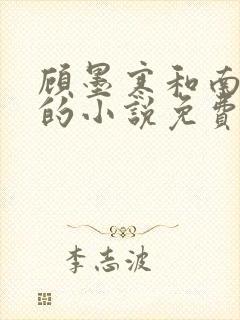 顾墨寒和南
的小说免费
李志波